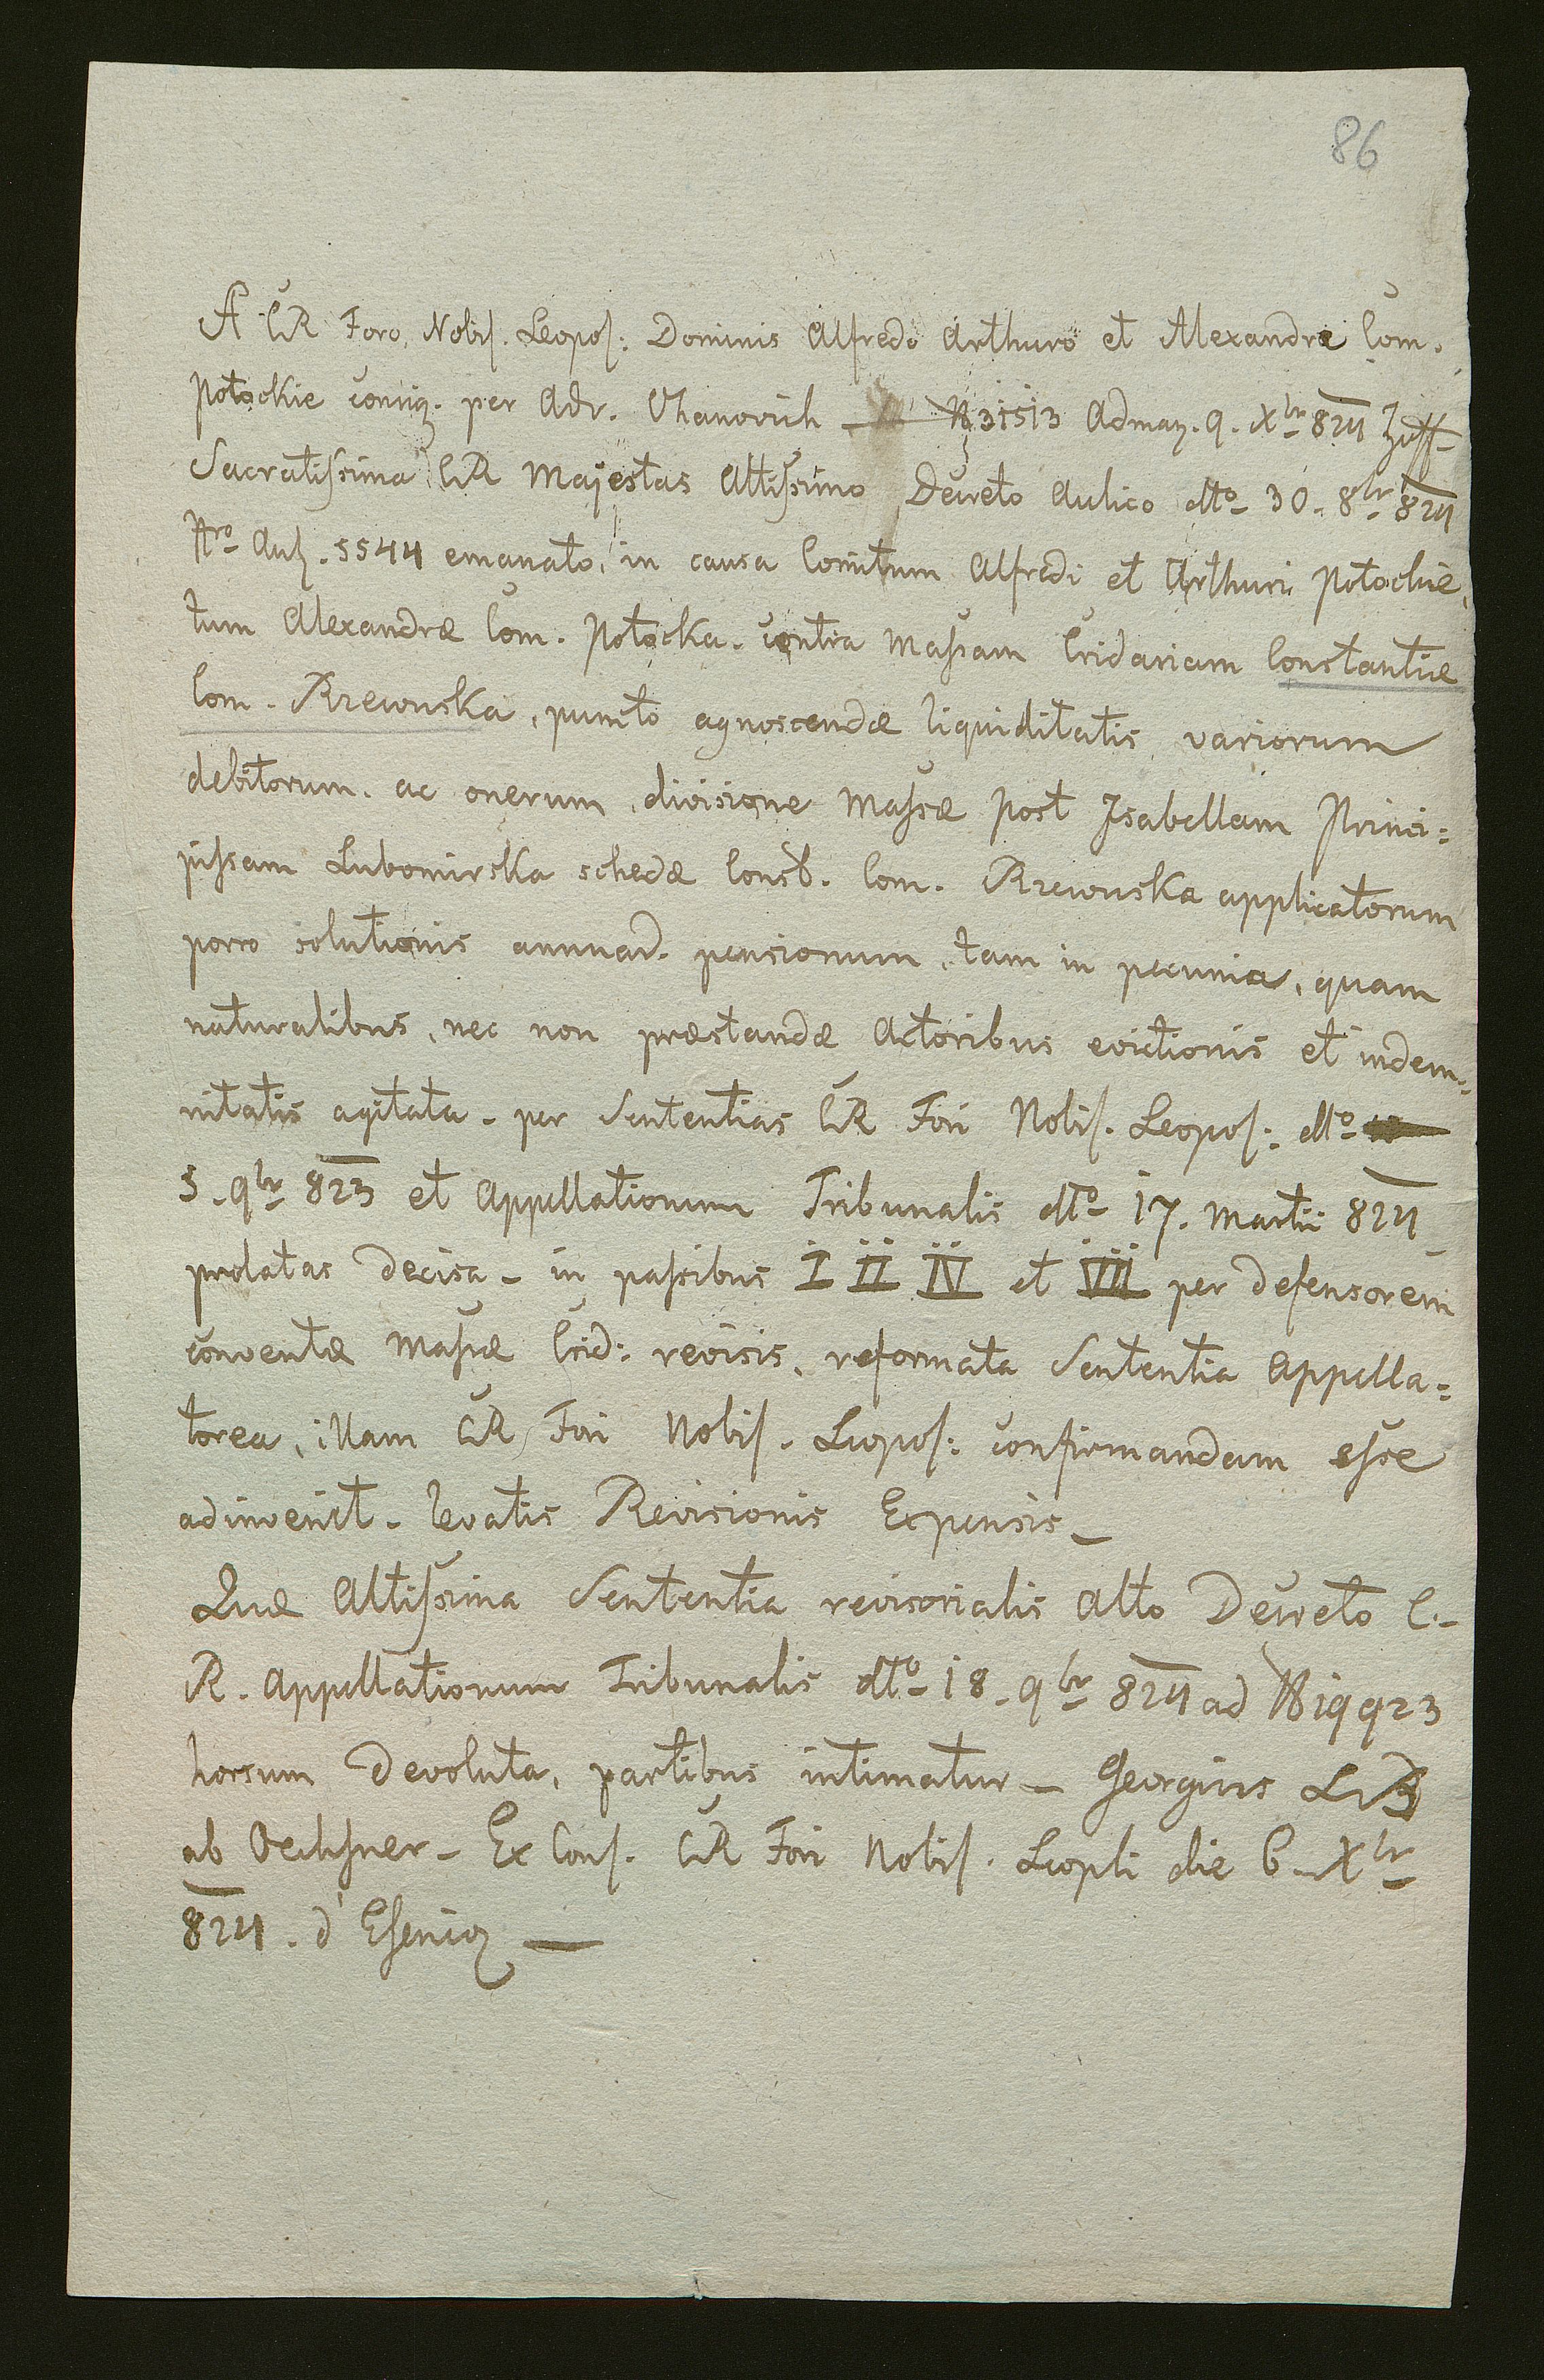 86
A CR Foro Nobis. Leopos: Dominis Alfredo Arthuro et Alexandræ Com.
Potockie consig. per Adv. Uhanovich — N 31513 Admaz. 9. Xbr 824
Sacratissima CR Majestas Altissimo Decreto Aulico dto 30. 8br 824
Nro Aul. 5544 emanato, in causa Comitum Alfredi et Arthuri Potockie,
tum Alexandræ Com. Potocka. contra Massam Cridariam Constantiæ
Com. Rzewuska, puncto agnoscendæ liquiditatis variorum
debitorum. ac onerum, divisione Massæ post Isabellam Princi=
pissam Lubomirska schedæ Const. Com. Rzewuska applicatorum
porro solutionis annuar. pensionum, tam in pecunia, quam
naturalibus, nec non præstandæ Actoribus evictionis et indem=
nitatis agitata - per Sententias CR Fori Nobis. Leopos: dto
5. 9br 823 et Appellationum Tribunalis dto 17. Martii 824
prolatas Decisa - in passibus I II IV et VII per defensorem
conventæ Massæ Crid: revisis, reformata Sententia Appella=
torea, illam CR Fori Nobis. Leopos: confirmandam esse
adinvenit - levatis Revisionis Expensis —
Quæ Altissima Sententia revisorialis Alto Decreto C.
R. Appellationum Tribunalis dto 18. 9br 824 ad N 19923
horsum Devoluta, partibus intimatur — Georgius LB
ab Oechsner - Ex Cons. CR Fori Nobis. Leopli die 6. Xbr
824. d'